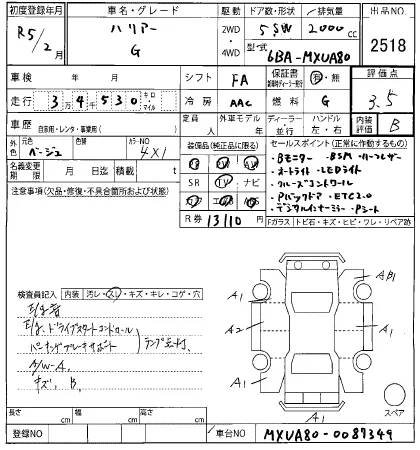 初度登録年月
R5/2月
車名・グレード
ハリアー
G
駆動
2WD
・
4WD
ドア数・形状
5 SW
排気量
2000 cc
型式
6BA-MXUA80
出品NO
2518
車検 年 月
シフト FA
保証書
有・無
評価点
3.5
走行 3万4千530 キロ・マイル
冷房 AAC
燃料 G
車歴 自家用・レンタ・事業用( )
定員 人
外車モデル 年
ディーラー・並行
ハンドル
左・右
内装評価 B
外色 元色 ベージュ
色替
カラーNO 4X1
装備品(純正品に限る)
SR TV ナビ
R券 13110円
セールスポイント(正常に作動するもの)
・Bモニター ・BSM
・オートライト ・LEDライト
・クルーズコントロール
・Pバックドア ・ETC2.0
・デジタルインナーミラー ・Pシート
Fガラス トビ石・キズ・ヒビ・ワレ・リペア跡
名義変更期限 月 日迄
積載 t
注意事項(欠品・修復・不具合箇所および状態)
検査員記入 内装 汚レ・スレ・キズ・キレ・コゲ・穴
ドライブスタートコントロール
パーキングブレーキサポート
ランプ点灯
A/W-A,
キズ, B,
A1
AB1
A2
A1
A1
A1
A1
スペア
長さ cm
幅 cm
高さ cm
登録NO
車台NO MXUA80-0087349